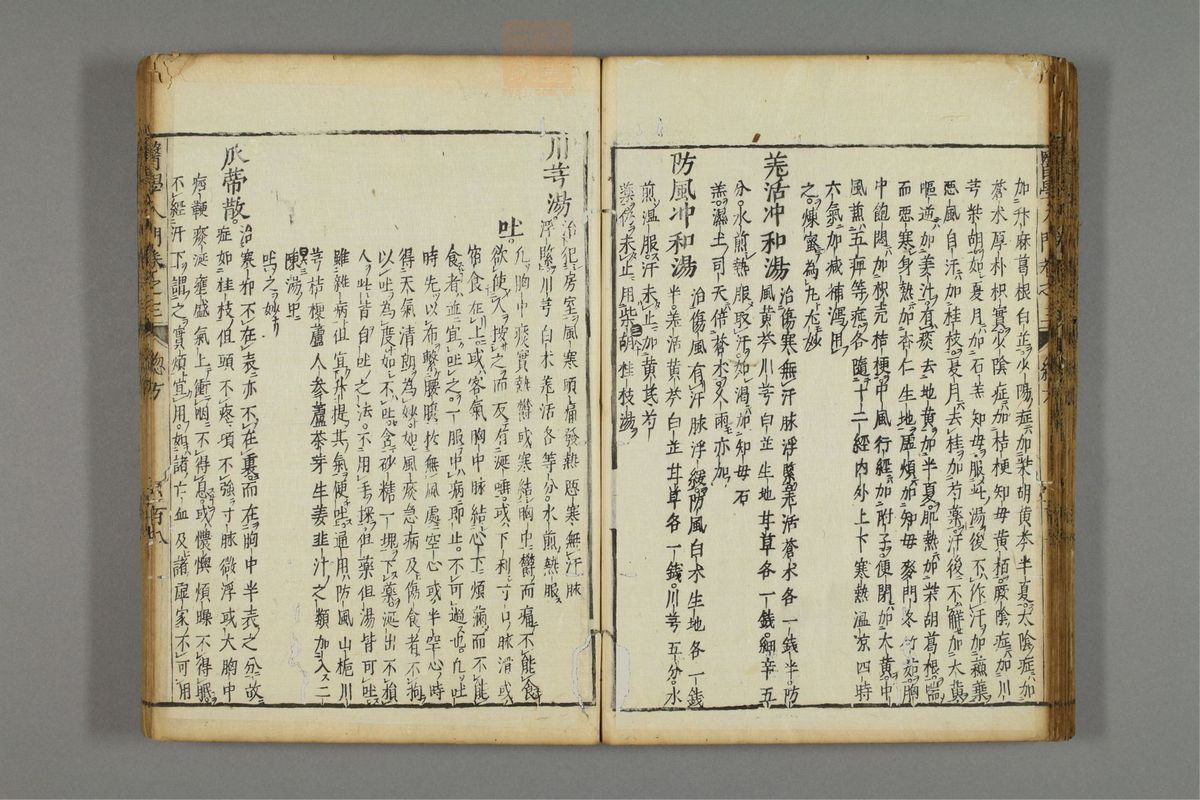 加升麻葛根白芷少陽症加柴胡黃芩半夏太陰症加
蒼朮厚朴枳實少陰症加桔梗知母黃栢厥陰症加川
芎柴胡如夏月加石羔知母服此湯後不作汗加蘓葉
惡風自汗加桂枝夏月去桂加芍藥汗後不解加大黃
嘔逆加姜汁有痰去地黃加半夏肌熱加柴胡葛根
而惡寒身熱加杏仁生地虛煩加知母麥門冬竹茹胸
中飽悶加枳壳桔梗中風行經加附子便閉加大黃中
風煎五痺等症各隨十二經內外上下寒熱溫凉四時
六氣加減補瀉用
之煉蜜為丸尤妙
羗活冲和湯 治傷寒無汗脉浮緊羗活蒼朮各一錢半防
風黃芩川芎白芷生地甘草各一錢細辛五
分水煎熱服取汗如渴加知母石
羔濕土司天倍蒼朮久雨亦加
防風冲和湯 治傷風有汗脉浮緩防風白朮生地各一錢
半羗活黃芩白芷甘草各一錢川芎五分水
煎溫服汗未止加黃芪芍
藥傍未止用柴胡桂枝湯
川芎湯 治犯房室風寒頭痛發熱惡寒無汗脉
浮緊川芎白朮羗活各等分水煎熱服
吐 凡胸中痰實熱鬱或寒結胸中鬱而痛不能食
欲使人按之而反有涎唾或下利寸口脉滑或
宿食在上或客氣胸中脉結心下煩滿而不能
食者並宜吐之一服中病即止不可過也凡吐
時先以布繫腰腹於無風處空心或半空心時
得天氣清朗為妙如風痰急病及傷食者不拘
以吐為度如不吐含砂糖一塊下藥涎出不損
人吐皆自吐之法不用手探但藥但湯皆可吐
雖雜病但宜升提其氣便吐通用防風山梔川
芎桔梗蘆人參蘆茶芽生姜韭汁之類加入二
陳湯中
吐之妙
瓜蒂散 治寒邪不在表亦不在裏而在胸中半表之分故
症如桂枝但頭不疼項不強寸脉微浮或大胸中
痞鞕痰涎壅盛氣上衝咽不得息或懊憹煩躁不得眠
不經汗下謂之實煩宜用如諸亡血及諸虛家不可用
醫學入門卷之三 總方